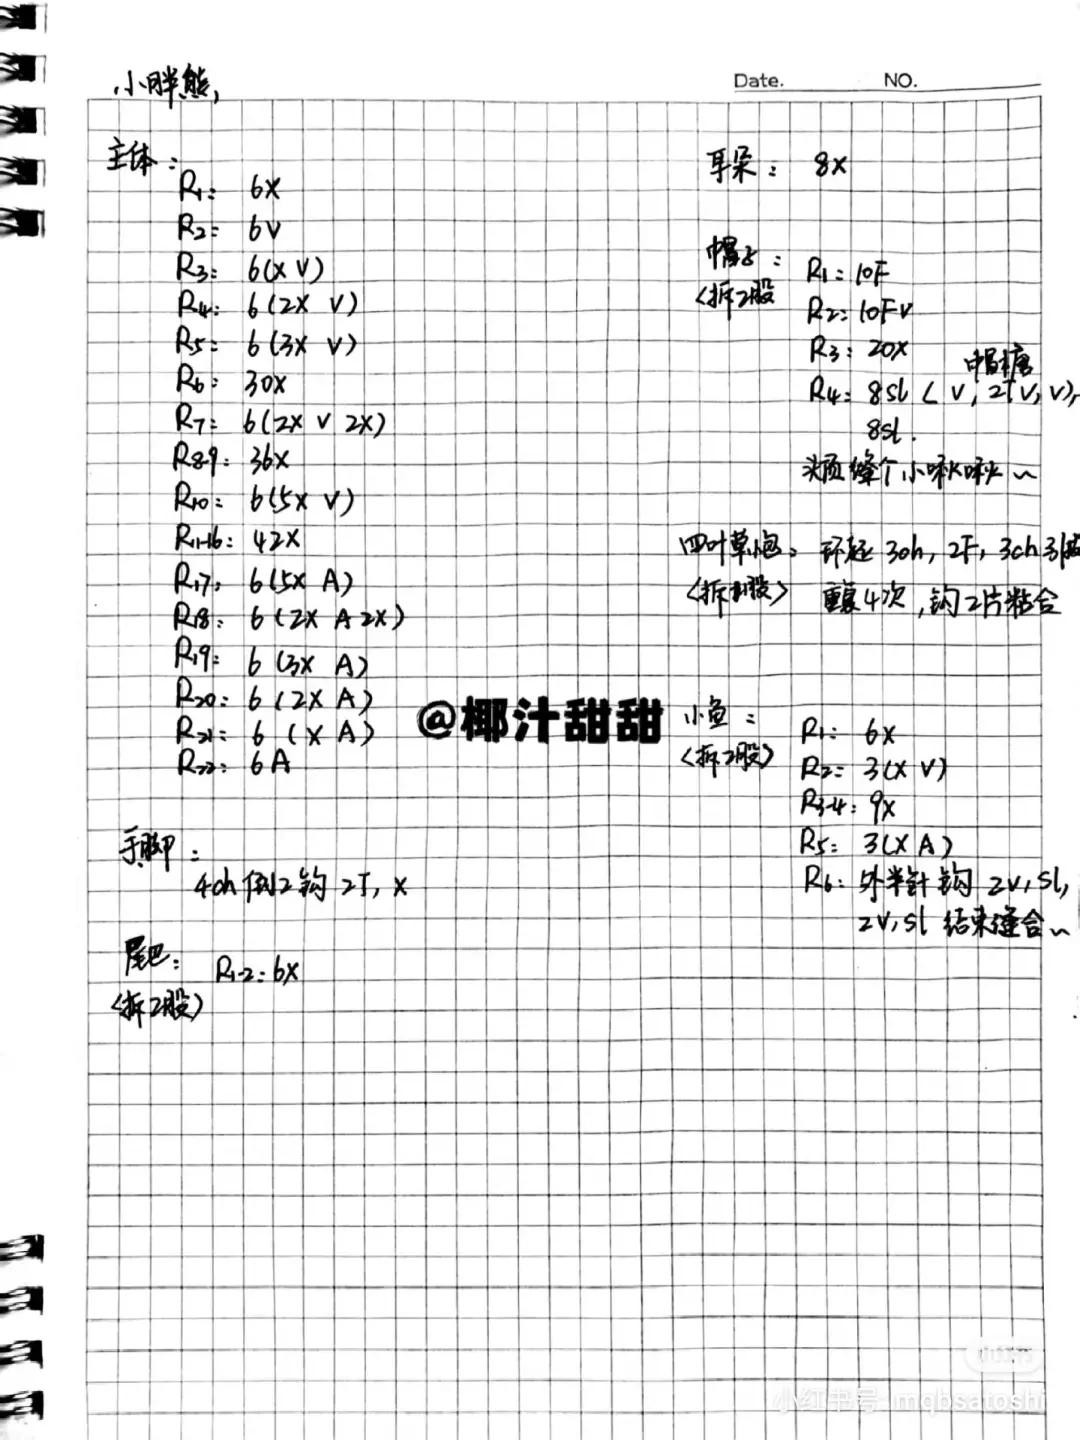 小胖熊,
Date.
NO.
主体:
R1: 6X
R2: 6V
R3: 6(X V)
R4: 6(2X V)
R5: 6(3X V)
R6: 30X
R7: 6(2X V 2X)
R8-9: 36X
R10: 6(5X V)
R11-16: 42X
R17: 6(5X A)
R18: 6(2X A 2X)
R19: 6(3X A)
R20: 6(2X A)
R21: 6(X A)
R22: 6A
手脚:
4ch 倒2钩 2T, X
尾巴: R1-2: 6X
(拆2股)
耳朵: 8X
帽子: R1: 10F
(拆2股
R2: 10FV
R3: 20X
帽檐
R4: 8sl (V, 2TV, V),
8sl.
头顶缝个小啾啾~
四叶草包: 环起 3ch, 2F, 3ch引拔
(拆 股) 重复4次,钩2片粘合
小鱼: R1: 6X
(拆2股) R2: 3(X V)
R3-4: 9X
R5: 3(X A)
R6: 外半针钩 2V, sl,
2V, sl 结束缝合~
@椰汁甜甜
小红书
小红书号: mqbsatoshi